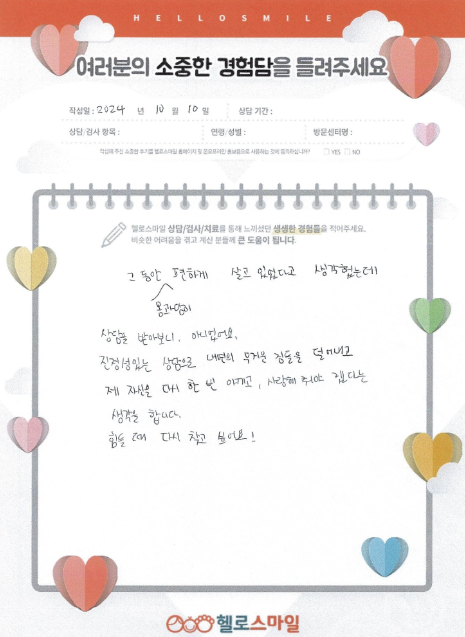 HELLOSMILE
여러분의 소중한 경험담을 들려주세요
작성일 : 2024 년 10 월 10 일 상담 기간 :
상담/검사 항목 : 연령/성별 : 방문센터명 :
작성해 주신 소중한 후기를 헬로스마일 홈페이지 및 온오프라인 홍보용으로 사용하는 것에 동의하십니까? □ YES □ NO
헬로스마일 상담/검사/치료를 통해 느끼셨던 생생한 경험들을 적어주세요.
비슷한 어려움을 겪고 계신 분들께 큰 도움이 됩니다.
그 동안 편하게 살고 있었다고 생각했는데
몸과 맘이
상담을 받아보니, 아니었어요.
진정성있는 상담으로 내면의 무거운 짐들을 덜어내고
제 자신을 다시 한 번 아끼고, 사랑해 주어야 겠다는
생각을 합니다.
힘들 때 다시 찾고 싶어요!
헬로스마일